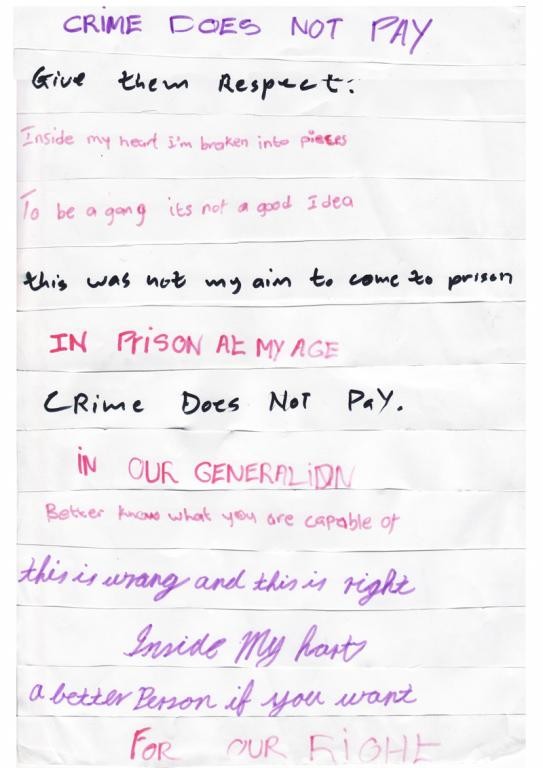 CRIME DOES NOT PAY
Give them Respect.
Inside my heart i'm broken into pieces
To be a gang its not a good Idea
this was not my aim to come to prison
IN PRISON At MY AGE
CRime Does NoT PaY.
iN OUR GENERALiDN
Better know what you are capable of
this is wrang and this is right
Inside My hart
a better Person if you want
FOR OUR RiGHT